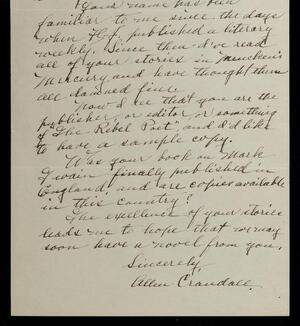 Your name has been
familiar to me since the days
when H-J. published a literary
weekly. Since then I've read
all of your stories in Mencken's
Mercury, and have thought them
all damned fine.
Now I see that you are the
publisher, or editor, or something
of "The Rebel Poet" and I'd like
to have a sample copy.
Was your book on Mark
Twain finally published in
England, and are copies available
in this country?
The excellence of your stories
leads me to hope that we may
soon have a novel from you.
Sincerely,
Allen Crandall.